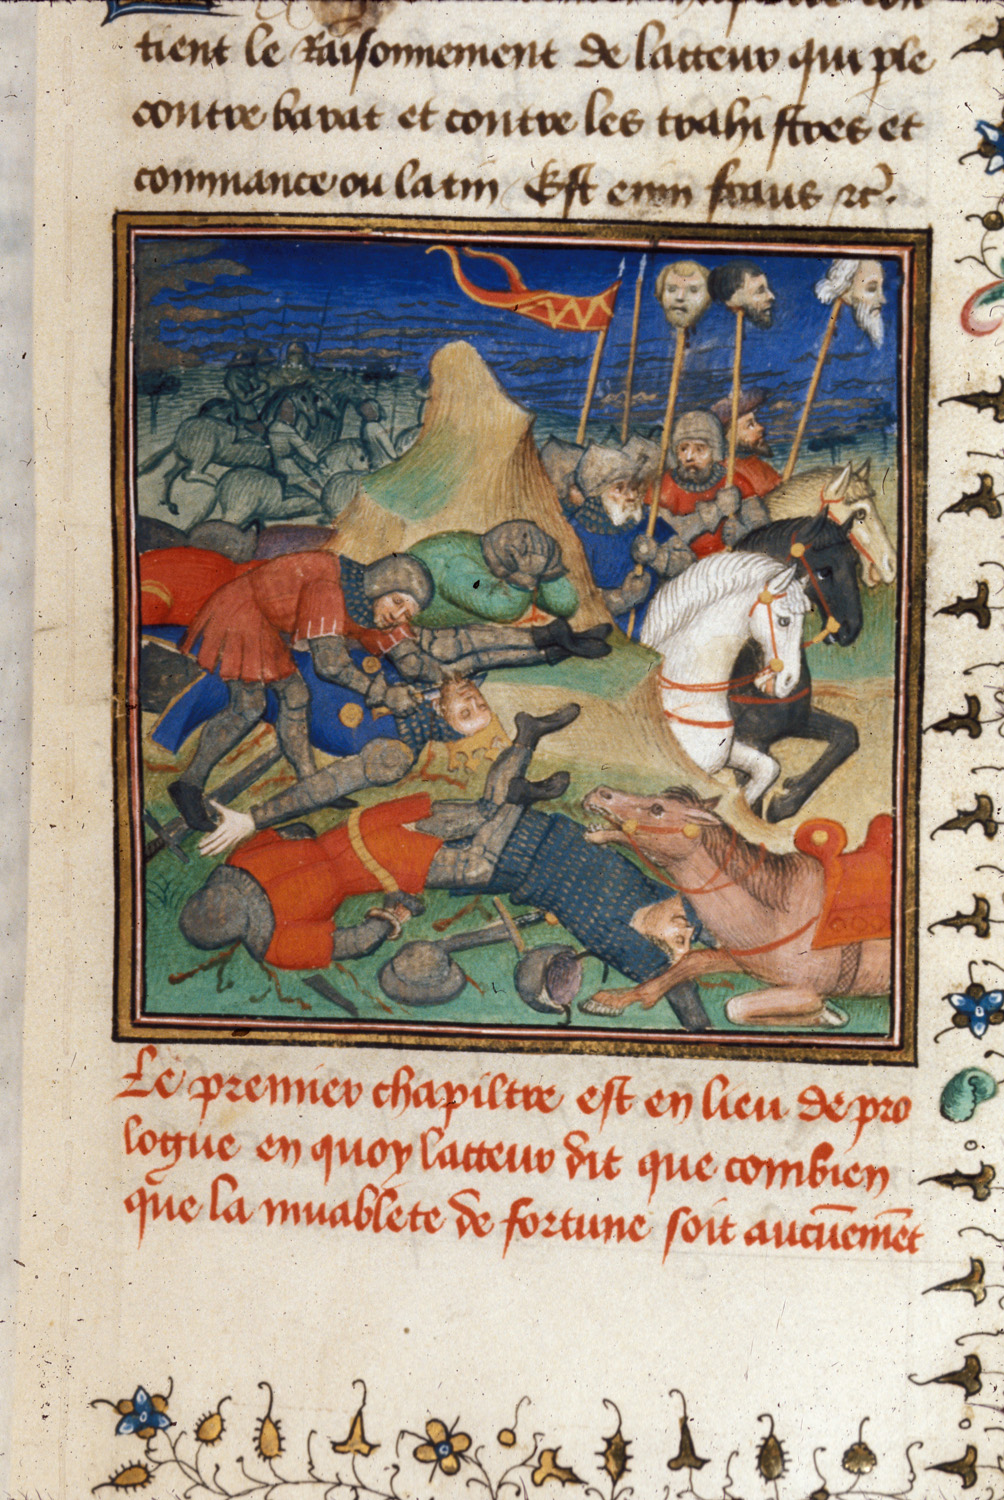 tient le Raisonnement de lacteur qui ple
contre barat et contre les trahistres et
commance ou latin Est enim fraus etc.
Le premier chapiltre est en lieu de pro
logue en quoy lacteur dit que combien
que la muablete de fortune soit aucunemēt